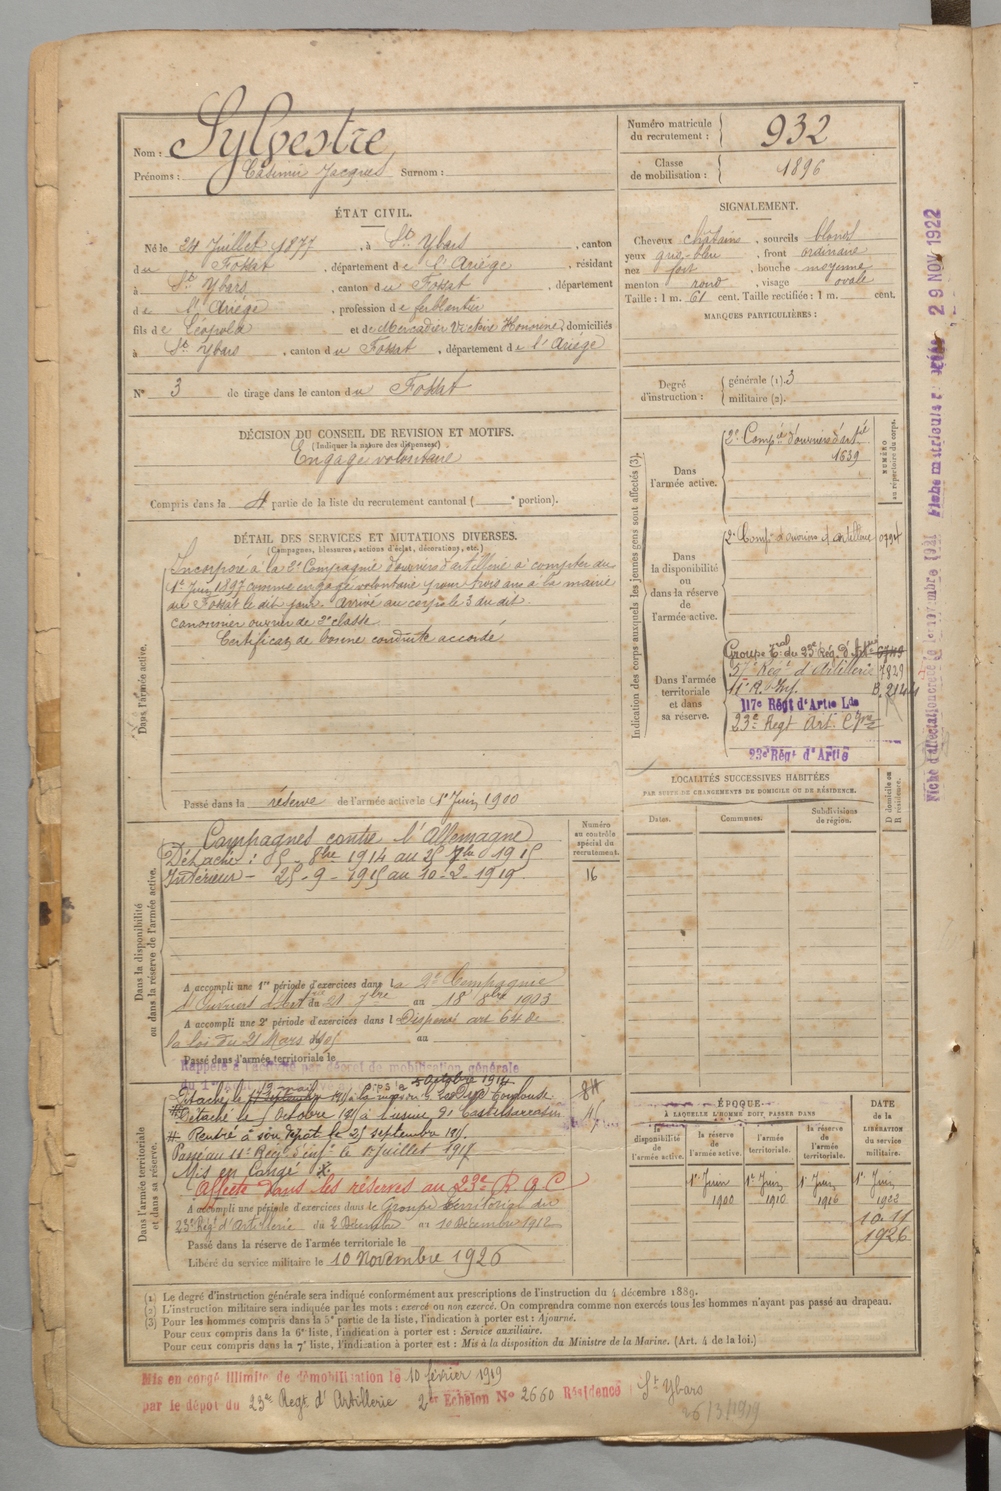 Nom : Sylvestre
Prénoms : Casimir Jacques Surnom :
Numéro matricule du recrutement : 932
Classe de mobilisation : 1896
ÉTAT CIVIL.
Né le 24 Juillet 1877, à St Ybars, canton
du Fossat, département de l'Ariège, résidant
à St Ybars, canton du Fossat, département
de l'Ariège, profession de ferblantier
fils de Léopold et de Mercadier Victoire Honorine, domiciliés
à St Ybars, canton du Fossat, département de l'Ariège
SIGNALEMENT.
Cheveux châtains, sourcils blonds
yeux gris-bleu, front ordinaire
nez fort, bouche moyenne
menton rond, visage ovale
Taille : 1 m. 61 cent. Taille rectifiée : 1 m. cent.
MARQUES PARTICULIÈRES :
N° 3 de tirage dans le canton du Fossat
Degré d'instruction : générale (1). 3
militaire (2).
DÉCISION DU CONSEIL DE REVISION ET MOTIFS.
(Indiquer la nature des dispenses)
Engagé volontaire
Compris dans la 4 partie de la liste du recrutement cantonal ( e portion).
DÉTAIL DES SERVICES ET MUTATIONS DIVERSES.
(Campagnes, blessures, actions d'éclat, décorations, etc.)
Dans l'armée active.
Incorporé à la 2e Compagnie d'ouvriers d'artillerie à compter du
1er Juin 1897 comme engagé volontaire pour trois ans à la mairie
du Fossat le dit jour. Arrivé au corps le 3 du dit.
Canonnier ouvrier de 2e classe.
Certificat de bonne conduite accordé.
Passé dans la réserve de l'armée active le 1er Juin 1900
Indication des corps auxquels les jeunes gens sont affectés (3).
NUMÉRO au répertoire du corps.
Dans l'armée active.
2e Compie d'ouvriers d'artie
1639
Dans la disponibilité ou dans la réserve de l'armée active.
2e Compie d'ouvriers d'artillerie 0794
Dans l'armée territoriale et dans sa réserve.
Groupe Tal du 23e Rég. d'Artie
57e Régt d'Artillerie 7829
11e R. d'Inf. B. 2144
117e Régt d'Artie Lde
23e Regt Art. Cgne
23e Régt d'Artie
LOCALITÉS SUCCESSIVES HABITÉES
PAR SUITE DE CHANGEMENTS DE DOMICILE OU DE RÉSIDENCE.
Dates. Communes. Subdivisions de région. D domicile ou R résidence.
Dans la disponibilité ou dans la réserve de l'armée active.
Numéro au contrôle spécial du recrutement.
16
Campagnes contre l'Allemagne
Détaché : 05 - 8bre 1914 au 25 7bre 1915
Intérieur - 25 - 9 - 1915 au 10 - 2 - 1919
A accompli une 1re période d'exercices dans la 2e Compagnie
d'Ouvriers d'Art du 21 7bre au 18 8bre 1903
A accompli une 2e période d'exercices dans l Dispensé art 64 de
la loi du 21 Mars 1905 au
Passé dans l'armée territoriale le
Rappelé à l'activité par décret de mobilisation générale
Dans l'armée territoriale et dans sa réserve.
Détaché le 5 Octobre 1915 à l'usine de Castelsarrasin
Rentré à son dépôt le 25 septembre 1915.
Passé au 11e Régt d'inf. le 1er juillet 1917
Mis en Congé ill.
Affecté dans les réserves au 23e R A C
A accompli une période d'exercices dans le Groupe territorial du
23e Régt d'Artillerie du 2 Décembre au 10 Décembre 1912
Passé dans la réserve de l'armée territoriale le
Libéré du service militaire le 10 Novembre 1926
ÉPOQUE
À LAQUELLE L'HOMME DOIT PASSER DANS
la disponibilité de l'armée active.
la réserve de l'armée active.
l'armée territoriale.
la réserve de l'armée territoriale.
DATE de la LIBÉRATION du service militaire.
1er Juin 1900
1er Juin 1910
1er Juin 1916
1er Juin 1922
10 11 1926
(1) Le degré d'instruction générale sera indiqué conformément aux prescriptions de l'instruction du 4 décembre 1889.
(2) L'instruction militaire sera indiquée par les mots : exercé ou non exercé. On comprendra comme non exercés tous les hommes n'ayant pas passé au drapeau.
(3) Pour les hommes compris dans la 5e partie de la liste, l'indication à porter est : Ajourné.
Pour ceux compris dans la 6e liste, l'indication à porter est : Service auxiliaire.
Pour ceux compris dans la 7e liste, l'indication à porter est : Mis à la disposition du Ministre de la Marine. (Art. 4 de la loi.)
Mis en congé illimité de démobilisation le 10 février 1919
par le dépôt du 23e Regt d'Artillerie 2e Echelon N° 2660 Résidence St Ybars
26/3/1919
29 NOV 1922